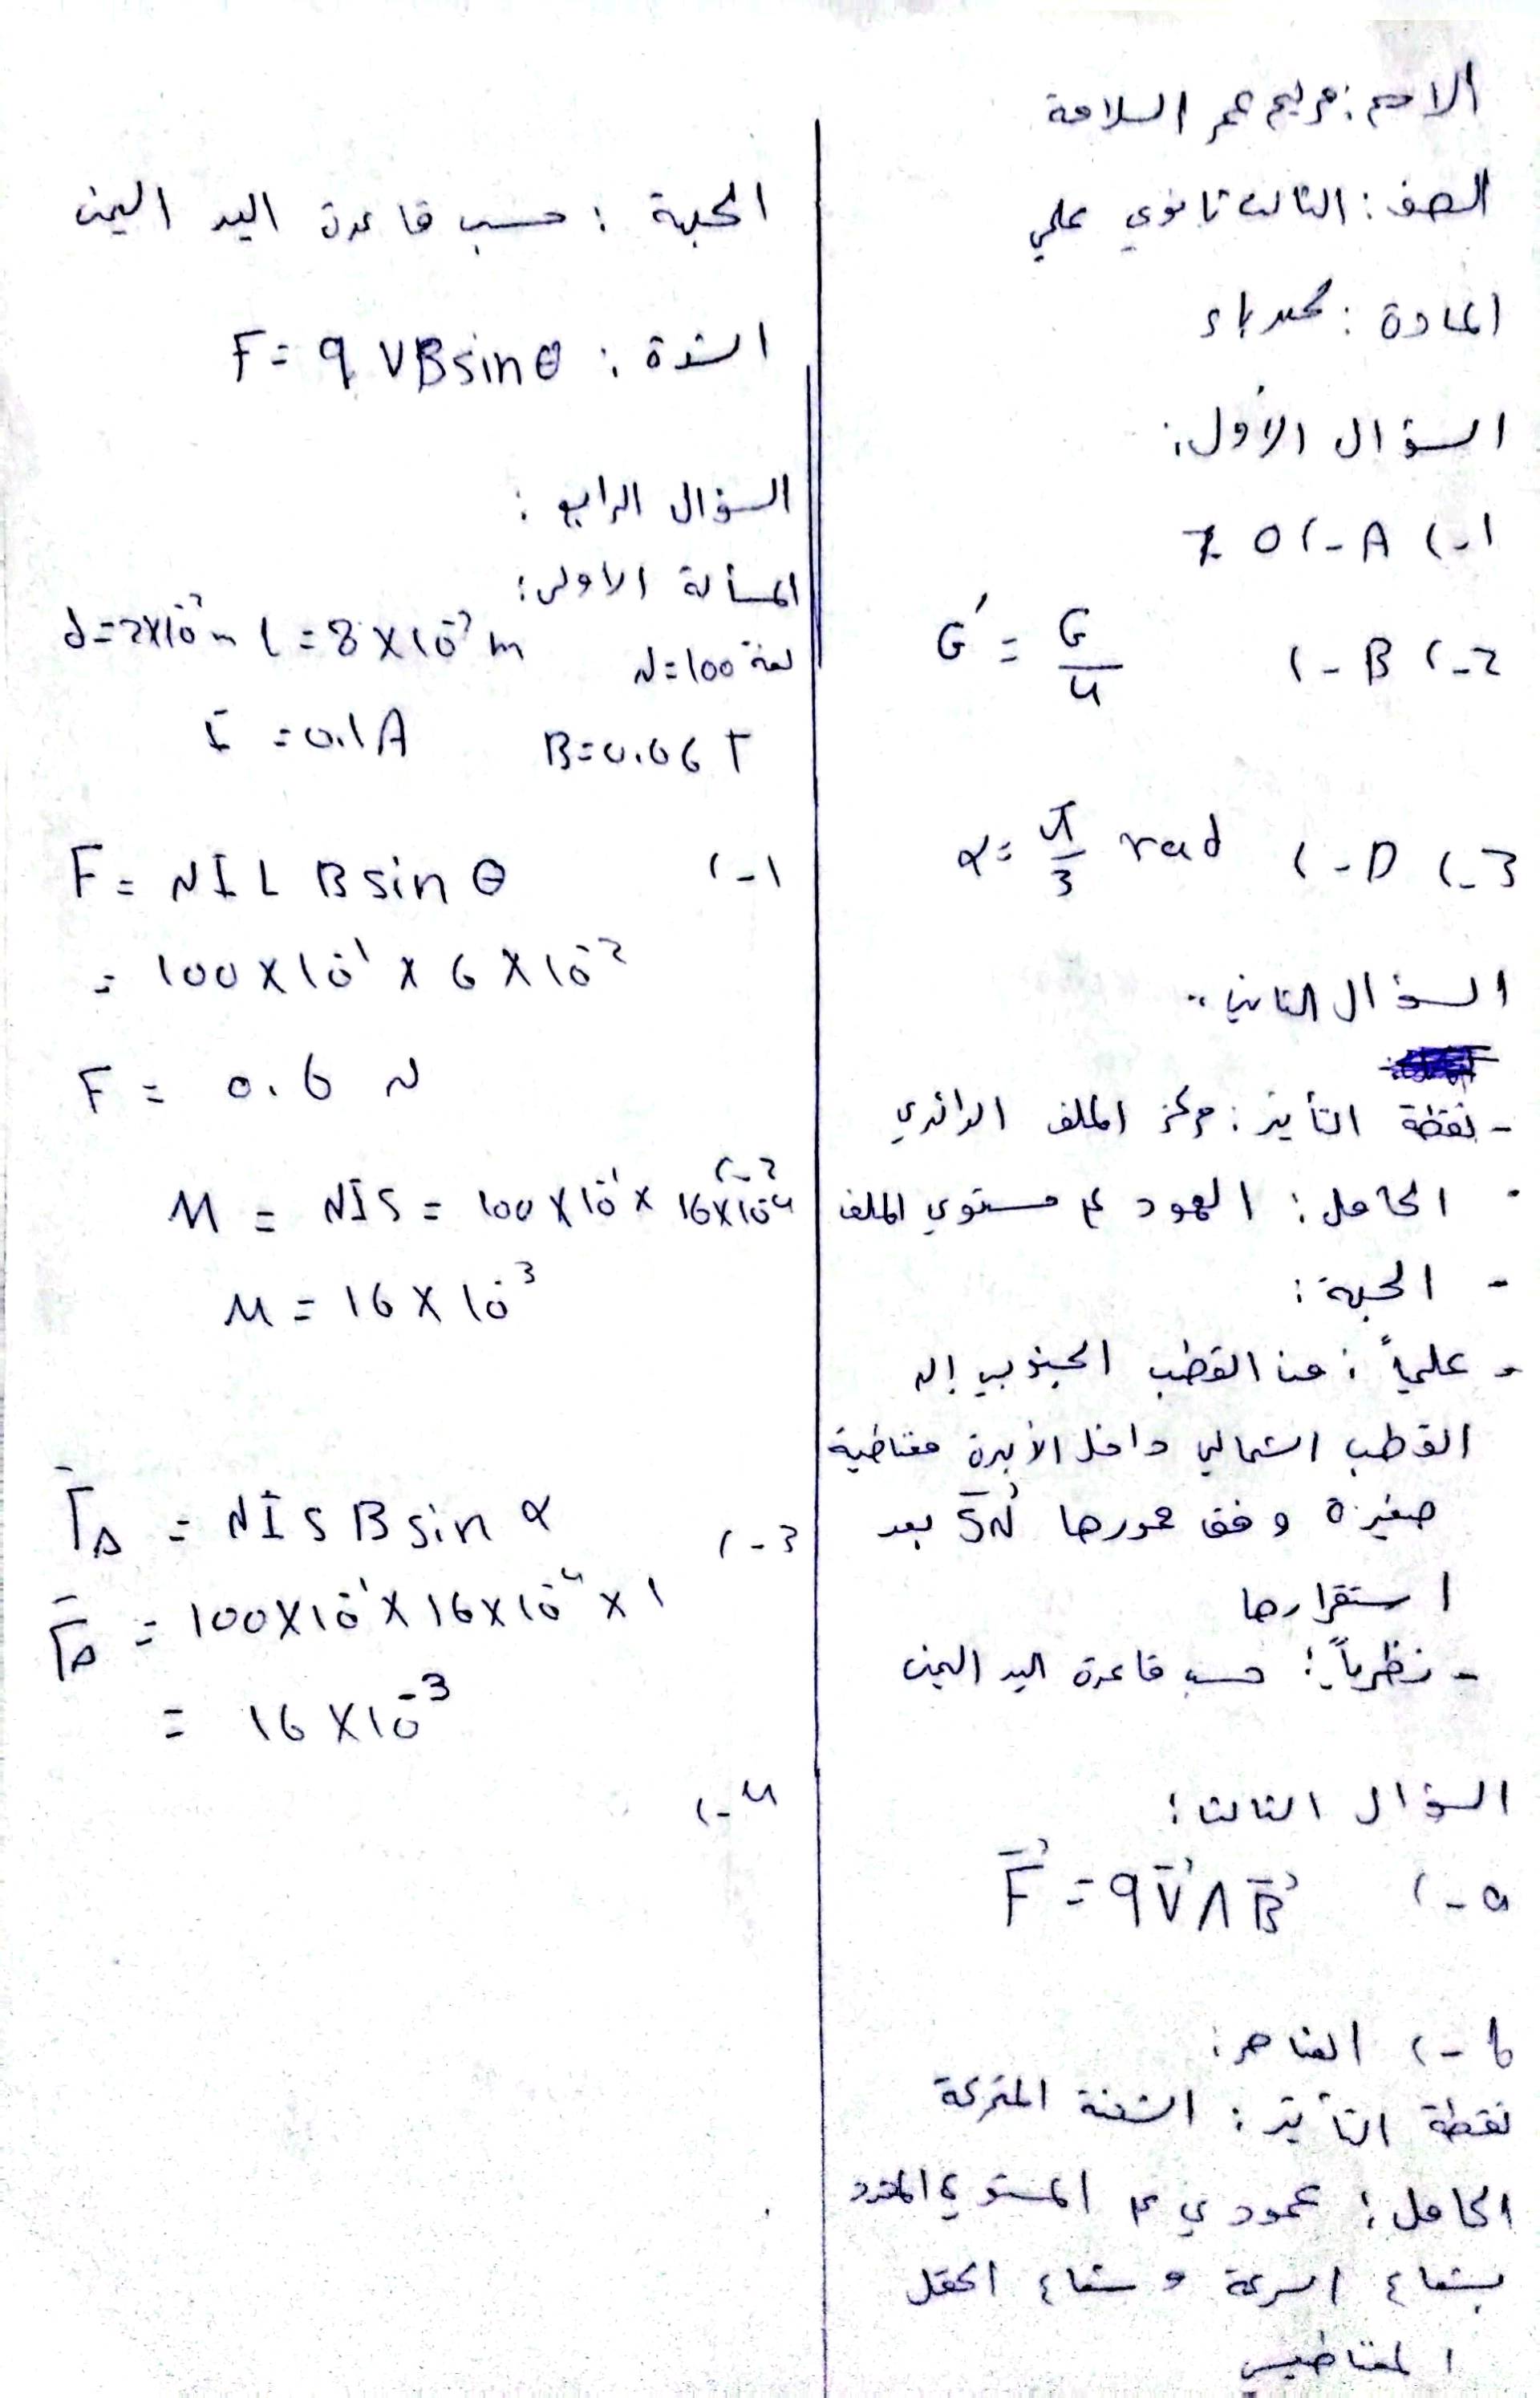 الاسم: مريم عمر السلامة
الصف: الثالث ثانوي علمي
المادة: كهرباء
السؤال الأول:
1-) A -) 0 Z
2-) B -) G' = G/4
3-) D -) α = π/3 rad
السؤال الثاني:
- نقطة التأثير: مركز الملف الدائري
- الحامل: العمود على مستوي الملف
- الجهة:
• عملياً: من القطب الجنوبي إلى
القطب الشمالي داخل الأبرة مغناطية
صغيرة وفق محورها SN بعد
استقرارها
- نظرياً: حسب قاعدة اليد اليمنى
السؤال الثالث:
a-) F = qV Λ B
b-) العناصر:
نقطة التأثير: الشحنة المتحركة
الحامل: عمودي على المستوي المحدد
بشعاع السرعة و شعاع الحقل
المغناطيسي
الجهة: حسب قاعدة اليد اليمنى
الشدة: F = qVB sin θ
السؤال الرابع:
المسألة الاولى:
N = 100 لفة L = 8×10⁻² m d = 2×10⁻² m
B = 0.06 T I = 0.1 A
1-) F = NIL B sin θ
= 100×10⁻¹ × 6×10⁻²
F = 0.6 N
2-)
M = NIS = 100×10⁻¹× 16×10⁻⁴
M = 16×10⁻³
3-) Γ_Δ = NISB sin α
Γ_Δ = 100×10⁻¹×16×10⁻⁴×1
= 16×10⁻³
4-)